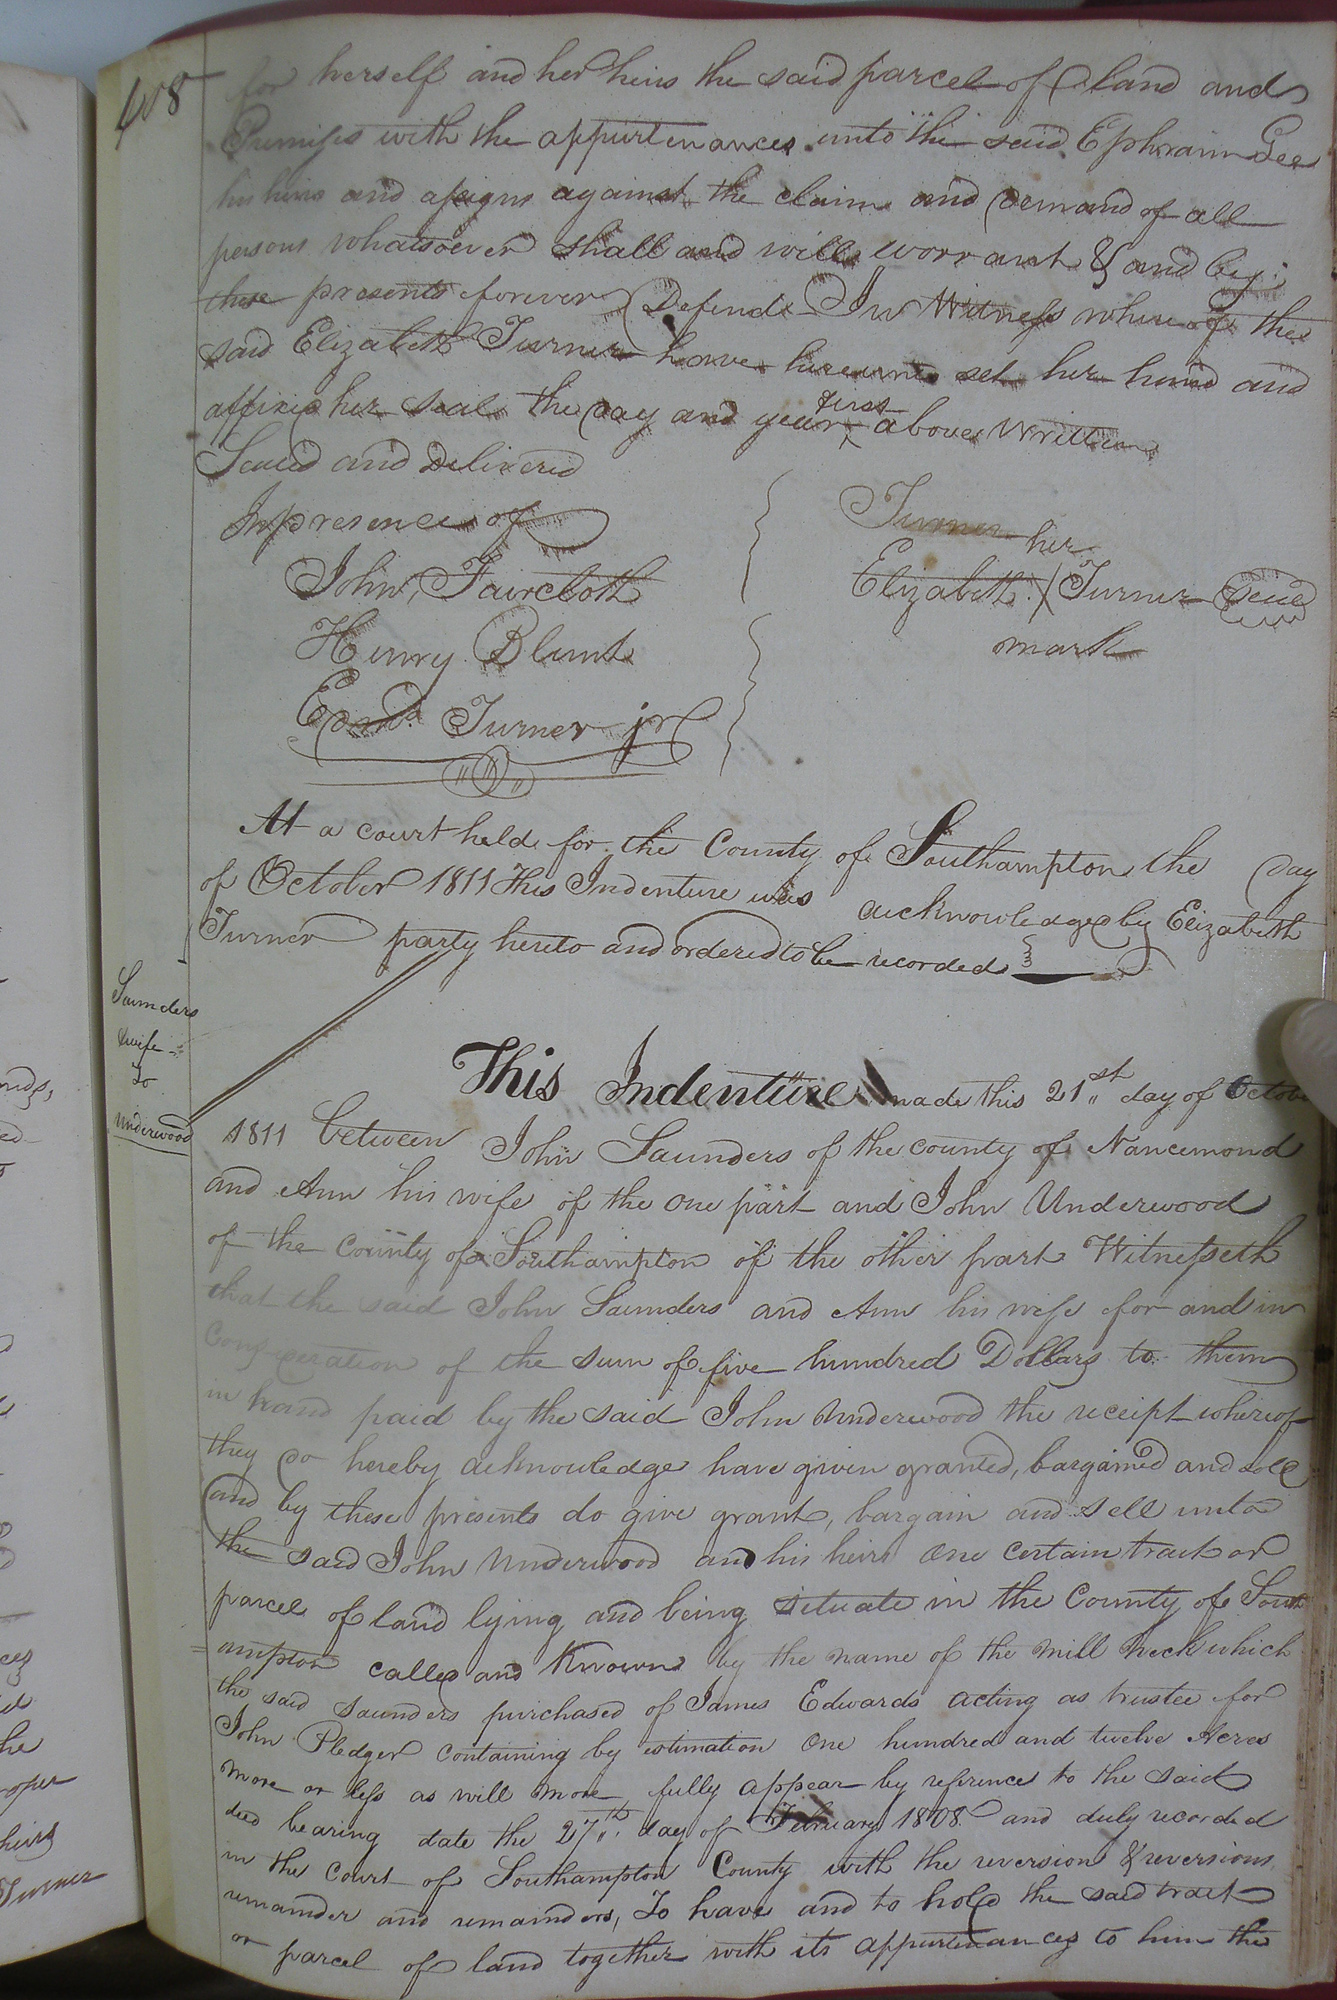 408
for herself and her heirs the said parcel of land and
Premises with the appurtenances unto the said Ephraim Gee
his heirs and assigns against the claim and demand of all
persons whatsoever shall and will worrant & and by
these presents forever Defend In Witness whereof the
said Elizabeth Turner have hereunto set her hand and
affixed her seal the day and year first above Written
Sealed and Delivered
In presence of
John Faircloth
Henry Blunt
Edmd. Turner jr
Turner her
Elizabeth X Turner seal
mark
At a court held for the County of Southampton the day
of October 1811 This Indenture was acknowledged by Elizabeth
Turner party hereto and ordered to be recorded
Saunders
& wife
To
Underwood
This Indenture made this 21st day of Octobe
1811 between John Saunders of the county of Nancemond
and Ann his wife of the one part and John Underwood
of the County of Southampton of the other part Witnesseth
that the said John Saunders and Ann his wife for and in
Consideration of the sum of five hundred Dollars to them
in hand paid by the said John Underwood the receipt whereof
they do hereby acknowledge have given granted, bargained and sold
and by these presents do give grant, bargain and sell unto
the said John Underwood and his heirs one certain tract or
parcel of land lying and being situate in the County of South
=ampton called and Known by the name of the mill neck which
the said Saunders purchased of James Edwards acting as trustee for
John Pledger containing by estimation one hundred and twelve Acres
more or less as will more fully appear by reference to the said
deed bearing date the 27th day of February 1808 and duly recorded
in the Court of Southampton County with the reversion & reversions
remainder and remainders, To have and to hold the said tract
or parcel of land together with its appurtenances to him the